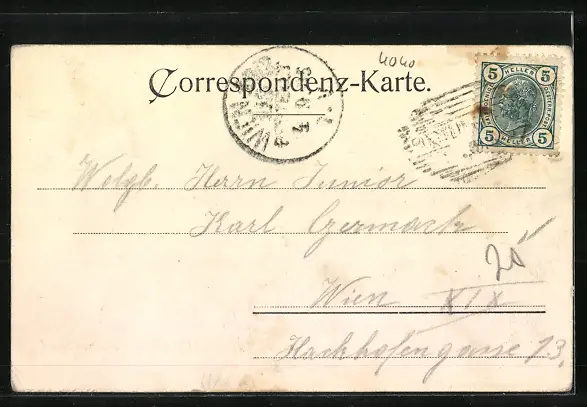 4040
Correspondenz-Karte.
5 HELLER 5
5 5
WIEN
Wolgb. Herrn Junior
Karl Czermack
20
Wien XIX
Hackhofergasse 13.